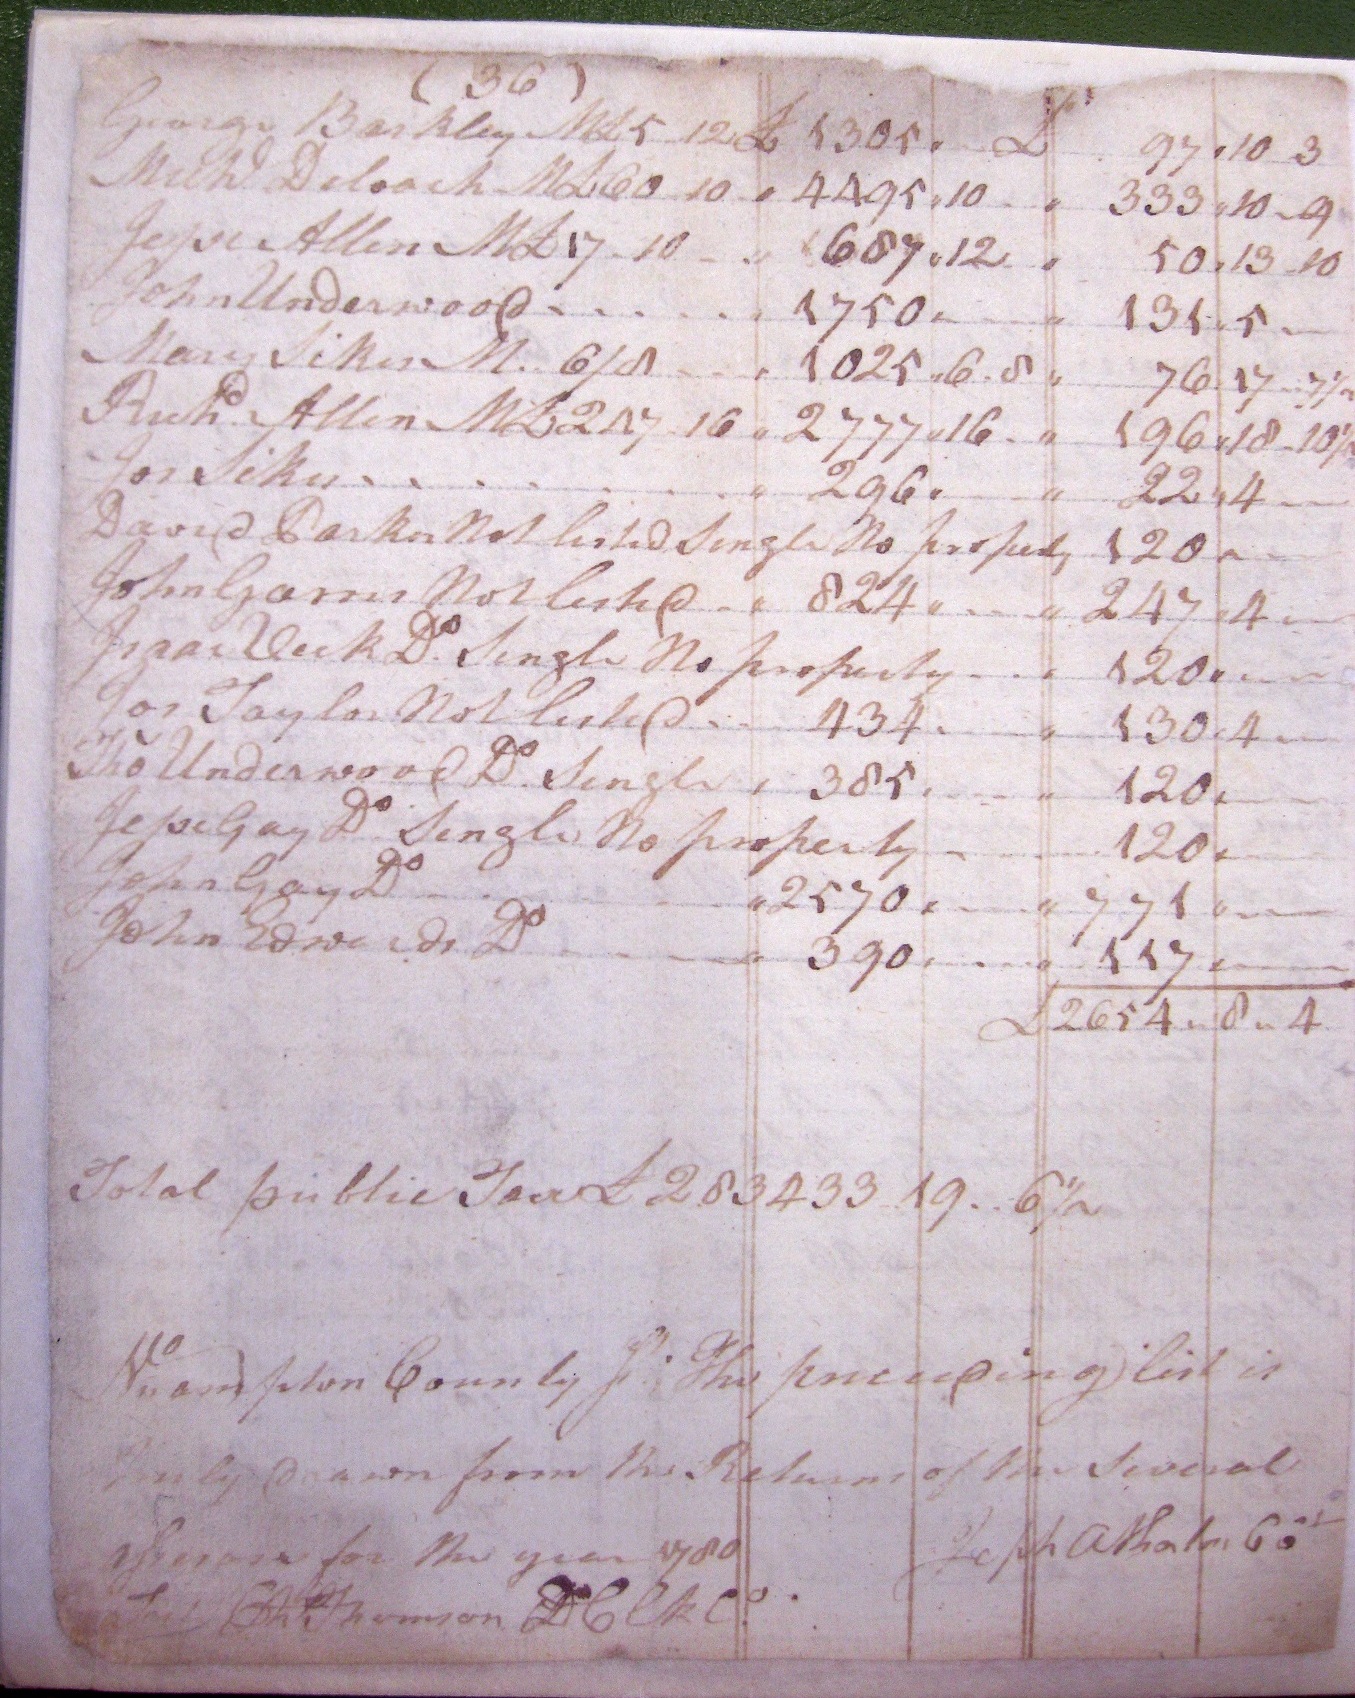 (36)
George Barkley M£5 12 £ 1305 " £ 97 " 10 3
Michl Deloach M£60 10 " 4495 " 10 " 333 " 10 9
Jesse Allen M£17 10 " 687 " 12 " 50 " 13 10
John Underwood " 1750 " " 131 " 5
Mary Sikes M. 6/8 " 1025 " 6 8 " 76 17 7½
Richd Allen M£217 16 " 2777 " 16 " 196 " 18 10½
Jos Sikes " 296 " " 22 " 4
David Parker Not listed Single No property 120 "
John Garris Not listed " 824 " " 247 " 4
Isaac Veek Do. Single No property " 120 "
Jos Taylor Not listed 434 " 130 4
Tho Underwood Do. Single " 385 " 120
Jesse Gay Do Single No property 120
John Gay Do " 2570 " " 771 "
John Edwards Do " 390 " " 117 "
£2654 " 8 " 4
Total public Tax £283433 19 6½
No ampton County The preceeding list is
truly drawn from the Returns of the several
for the year 1780
Test Thomson D C Clk Co.